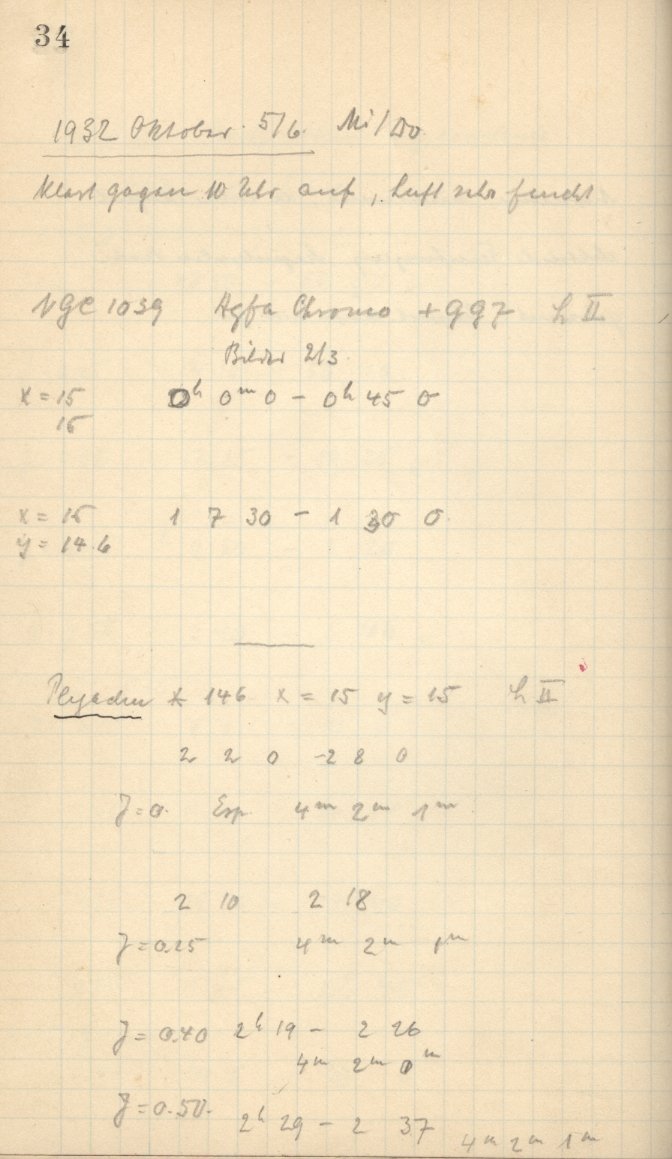 34
1932 Oktober 5/6. Mi/Do.
Klart gegen 10 Uhr auf, Luft sehr feucht
NGC 1039 Agfa Chromo + GG7 h II
Bilder 2/3.
x = 15 0h 0m 0 - 0h 45 0
15
x = 15 1 7 30 - 1 30 0
y = 14.6
Plejaden * 146 x = 15 y = 15 h II
2 2 0 - 2 8 0
J = 0. Exp. 4m 2m 1m
2 10 2 18
J = 0.25 4m 2m 1m
J = 0.40 2h 19 - 2 26
4m 2m 0m
J = 0.50. 2h 29 - 2 37 4m 2m 1m